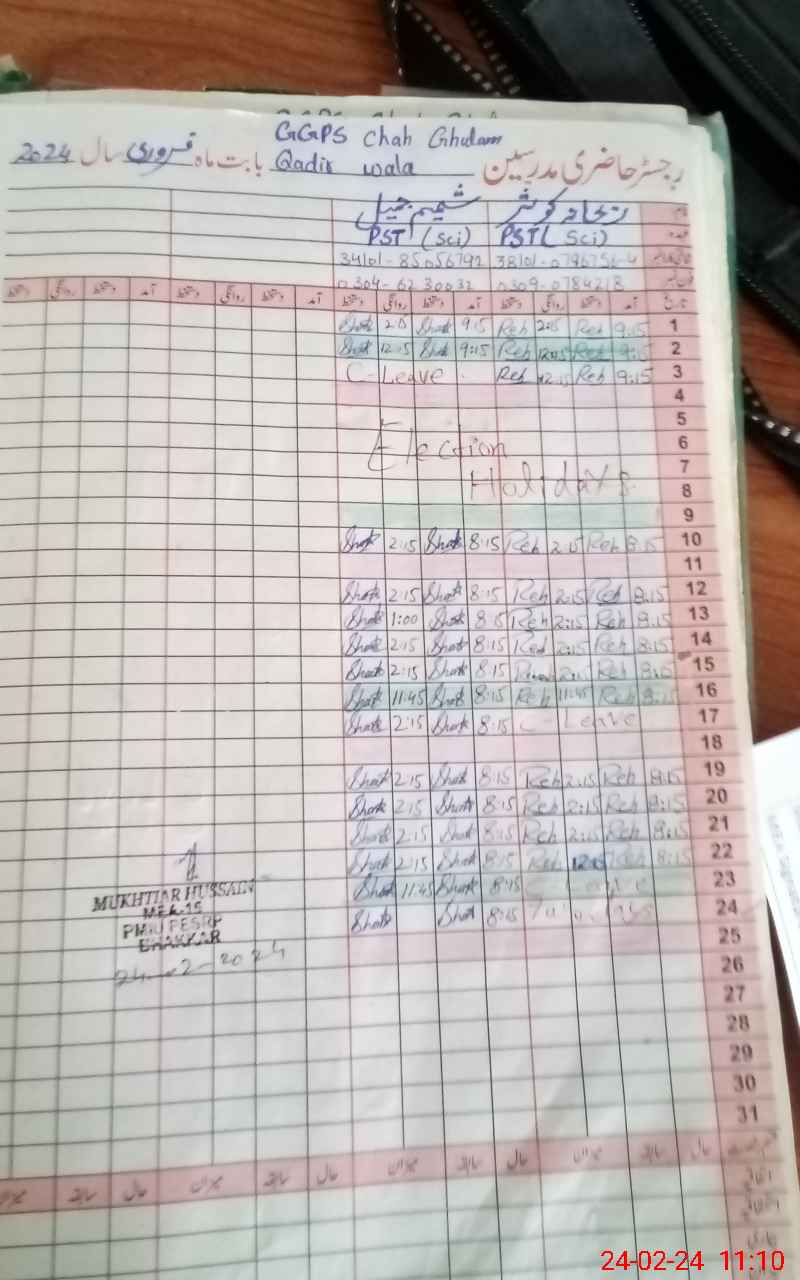 GGPS Chah Ghulam
رجسٹر حاضری مدرسین Qadir wala بابت ماہ فروری سال 2024
ریحانہ کوثر شمیم جمیل
PST (Sci) PST( Sci)
34101-85056792 38101-0796756-4
0304-6230032 0309-0784218
تاریخ آمد دستخط روانگی دستخط آمد دستخط روانگی دستخط آمد دستخط روانگی دستخط آمد دستخط روانگی دستخط
Shak 9:15 Reh 2:15 Reh 9:15 1
Shak 12:15 Shak 9:15 Reh 12:15 Reh 9:15 2
C-Leave Reh 12:15 Reh 9:15 3
4
5
Election 6
7
Holidays 8
9
Shak 2:15 Shak 8:15 Reh 2:15 Reh 8:15 10
11
Shak 2:15 Shak 8:15 Reh 2:15 Reh 8:15 12
Shak 1:00 Shak 8:15 Reh 2:15 Reh 8:15 13
Shak 2:15 Shak 8:15 Reh 2:15 Reh 8:15 14
Shak 2:15 Shak 8:15 2:15 Reh 8:15 15
Shak 11:45 Shak 8:15 Reh 11:45 Reh 8:15 16
Shak 2:15 Shak 8:15 C-Leave 17
18
Shak 2:15 Shak 8:15 Reh 2:15 Reh 8:15 19
Shak 2:15 Shak 8:15 Reh 2:15 Reh 8:15 20
Shak 2:15 Shak 8:15 Reh 2:15 Reh 8:15 21
Shak 2:15 Shak 8:15 Reh Reh 8:15 22
Shak 11:45 Shak 8:15 C-Leave 23
Shak Shak 8:15 24
25
26
27
28
29
30
31
MUKHTIAR HUSSAIN
MEA-15
PMIU PESRP
BHAKKAR
24-2-2024
حال سابقہ میزان حال سابقہ میزان حال سابقہ میزان حال سابقہ میزان
اتفاقیہ
24-02-24 11:10